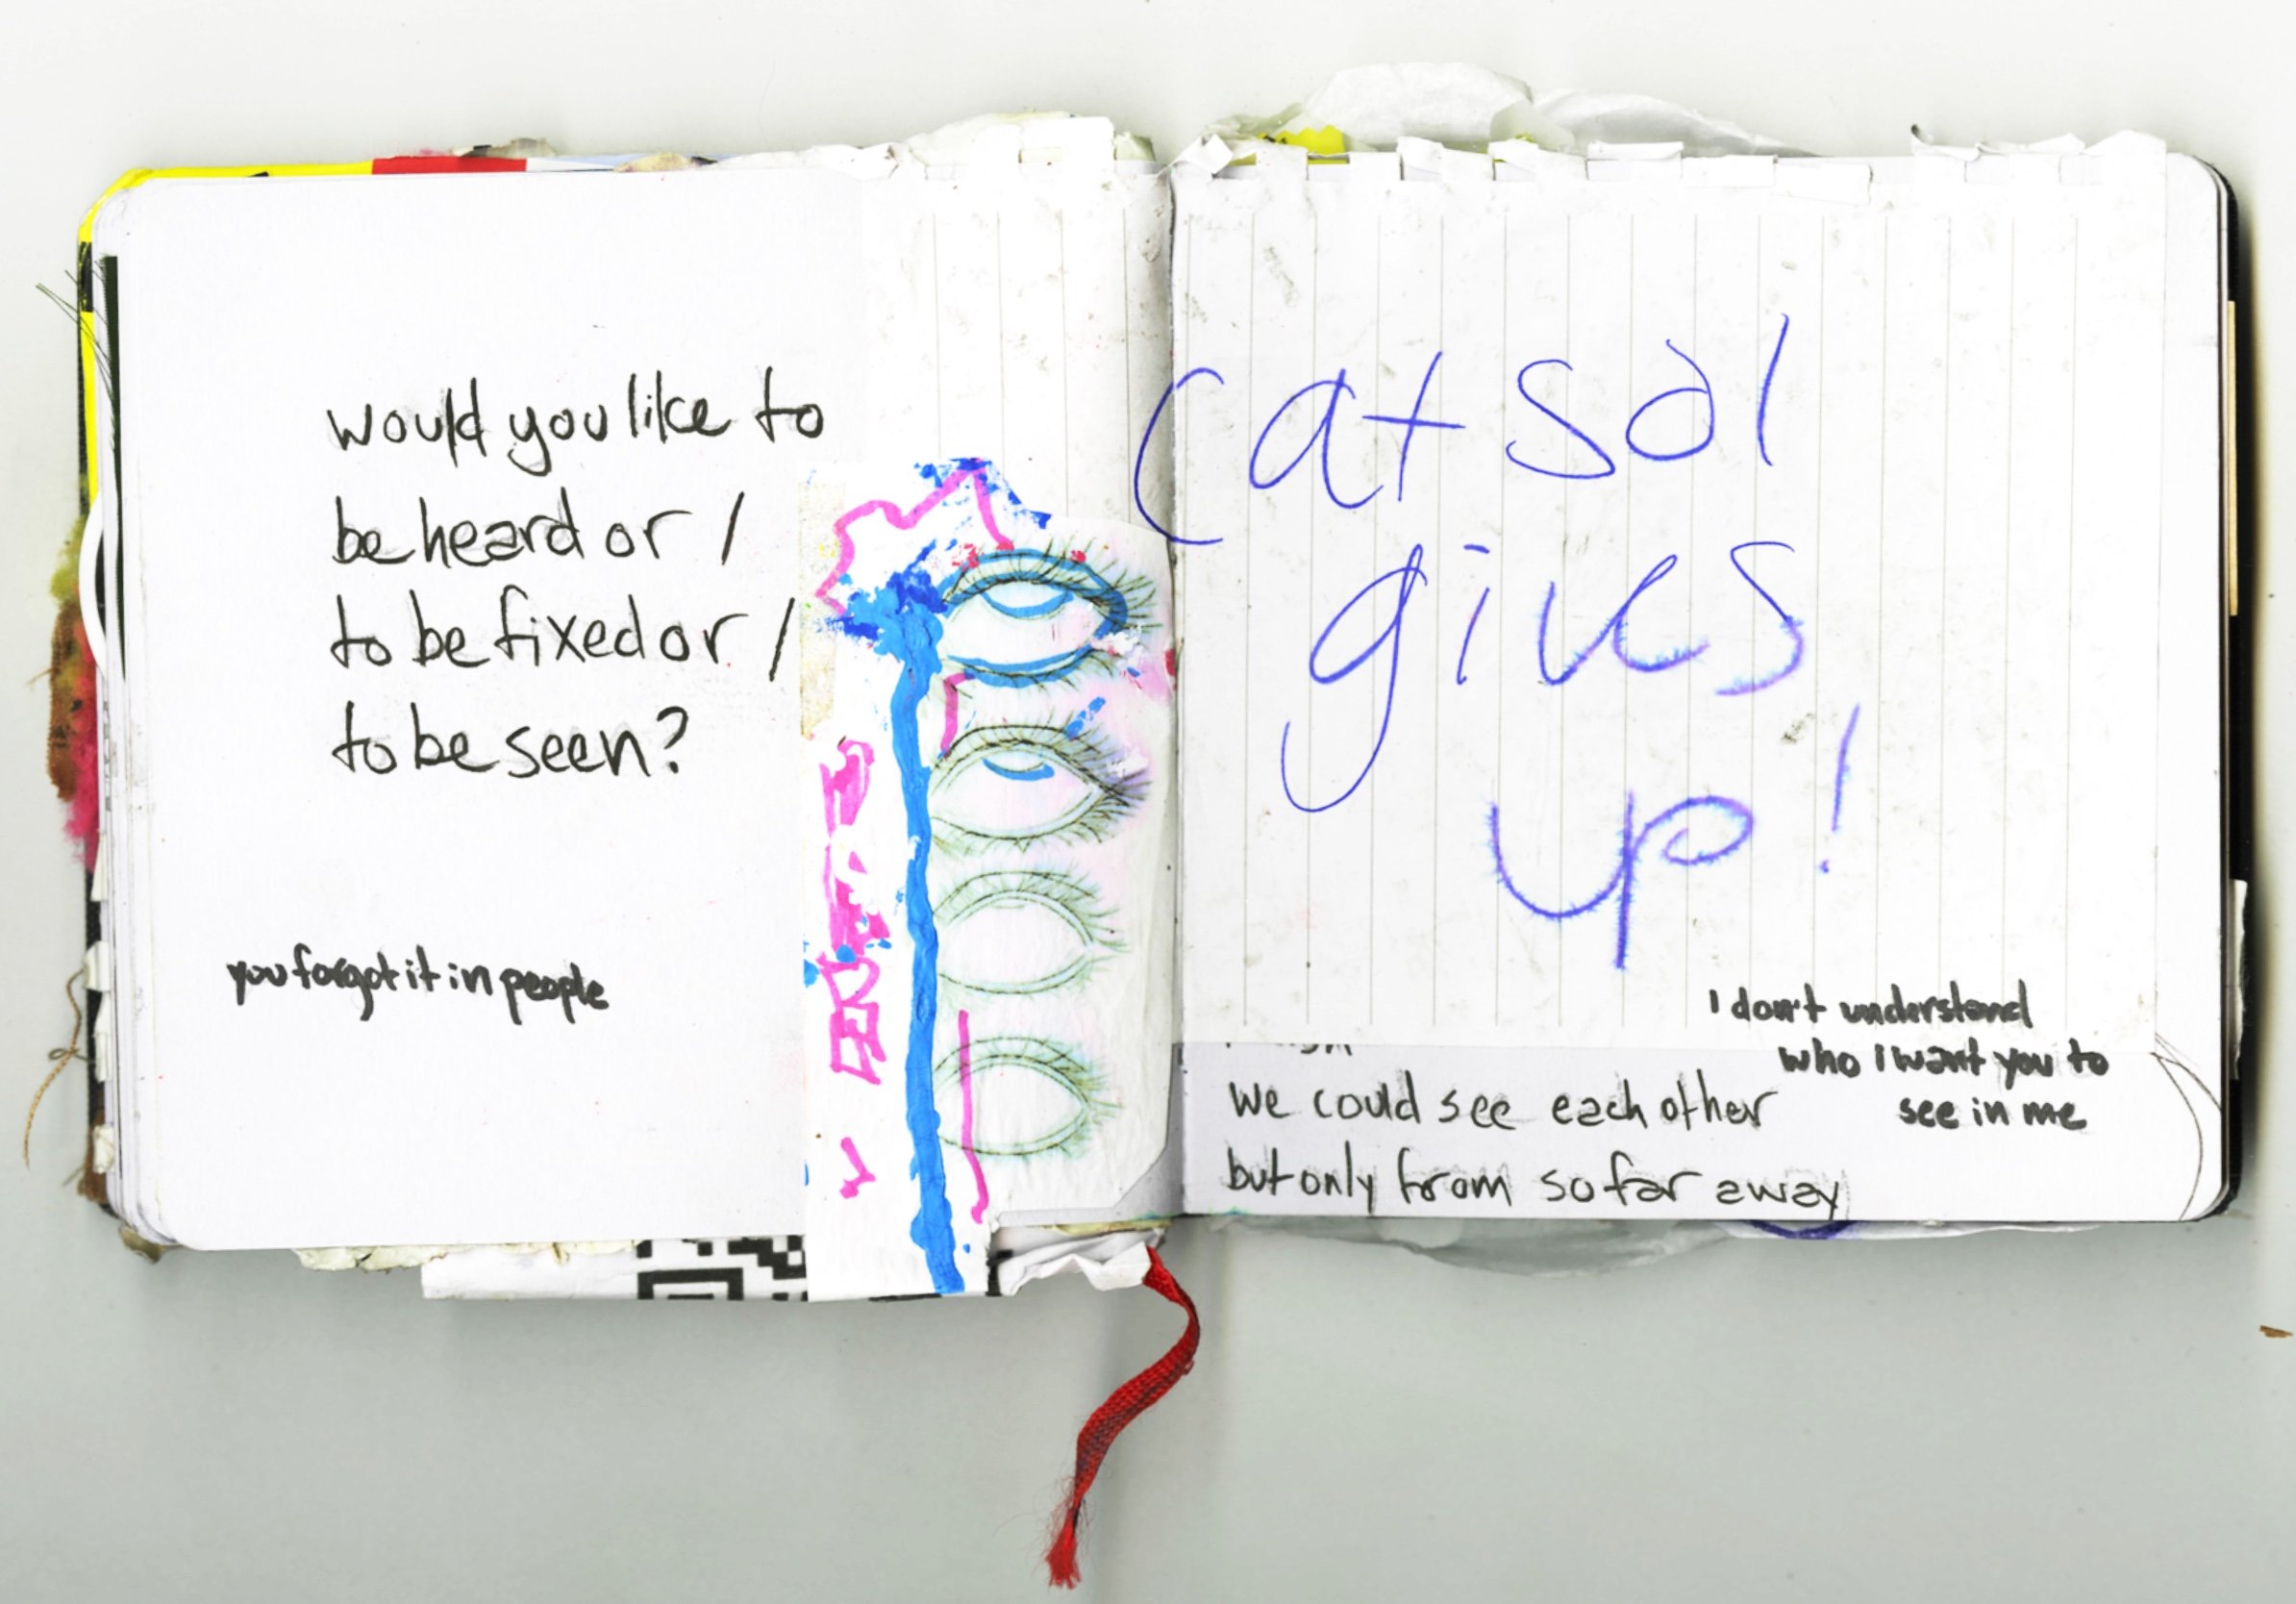 would you like to
be heard or /
to be fixed or /
to be seen?
you forgot it in people
cat sal
gives
up!
I don't understand
who I want you to
see in me
We could see each other
but only from so far away